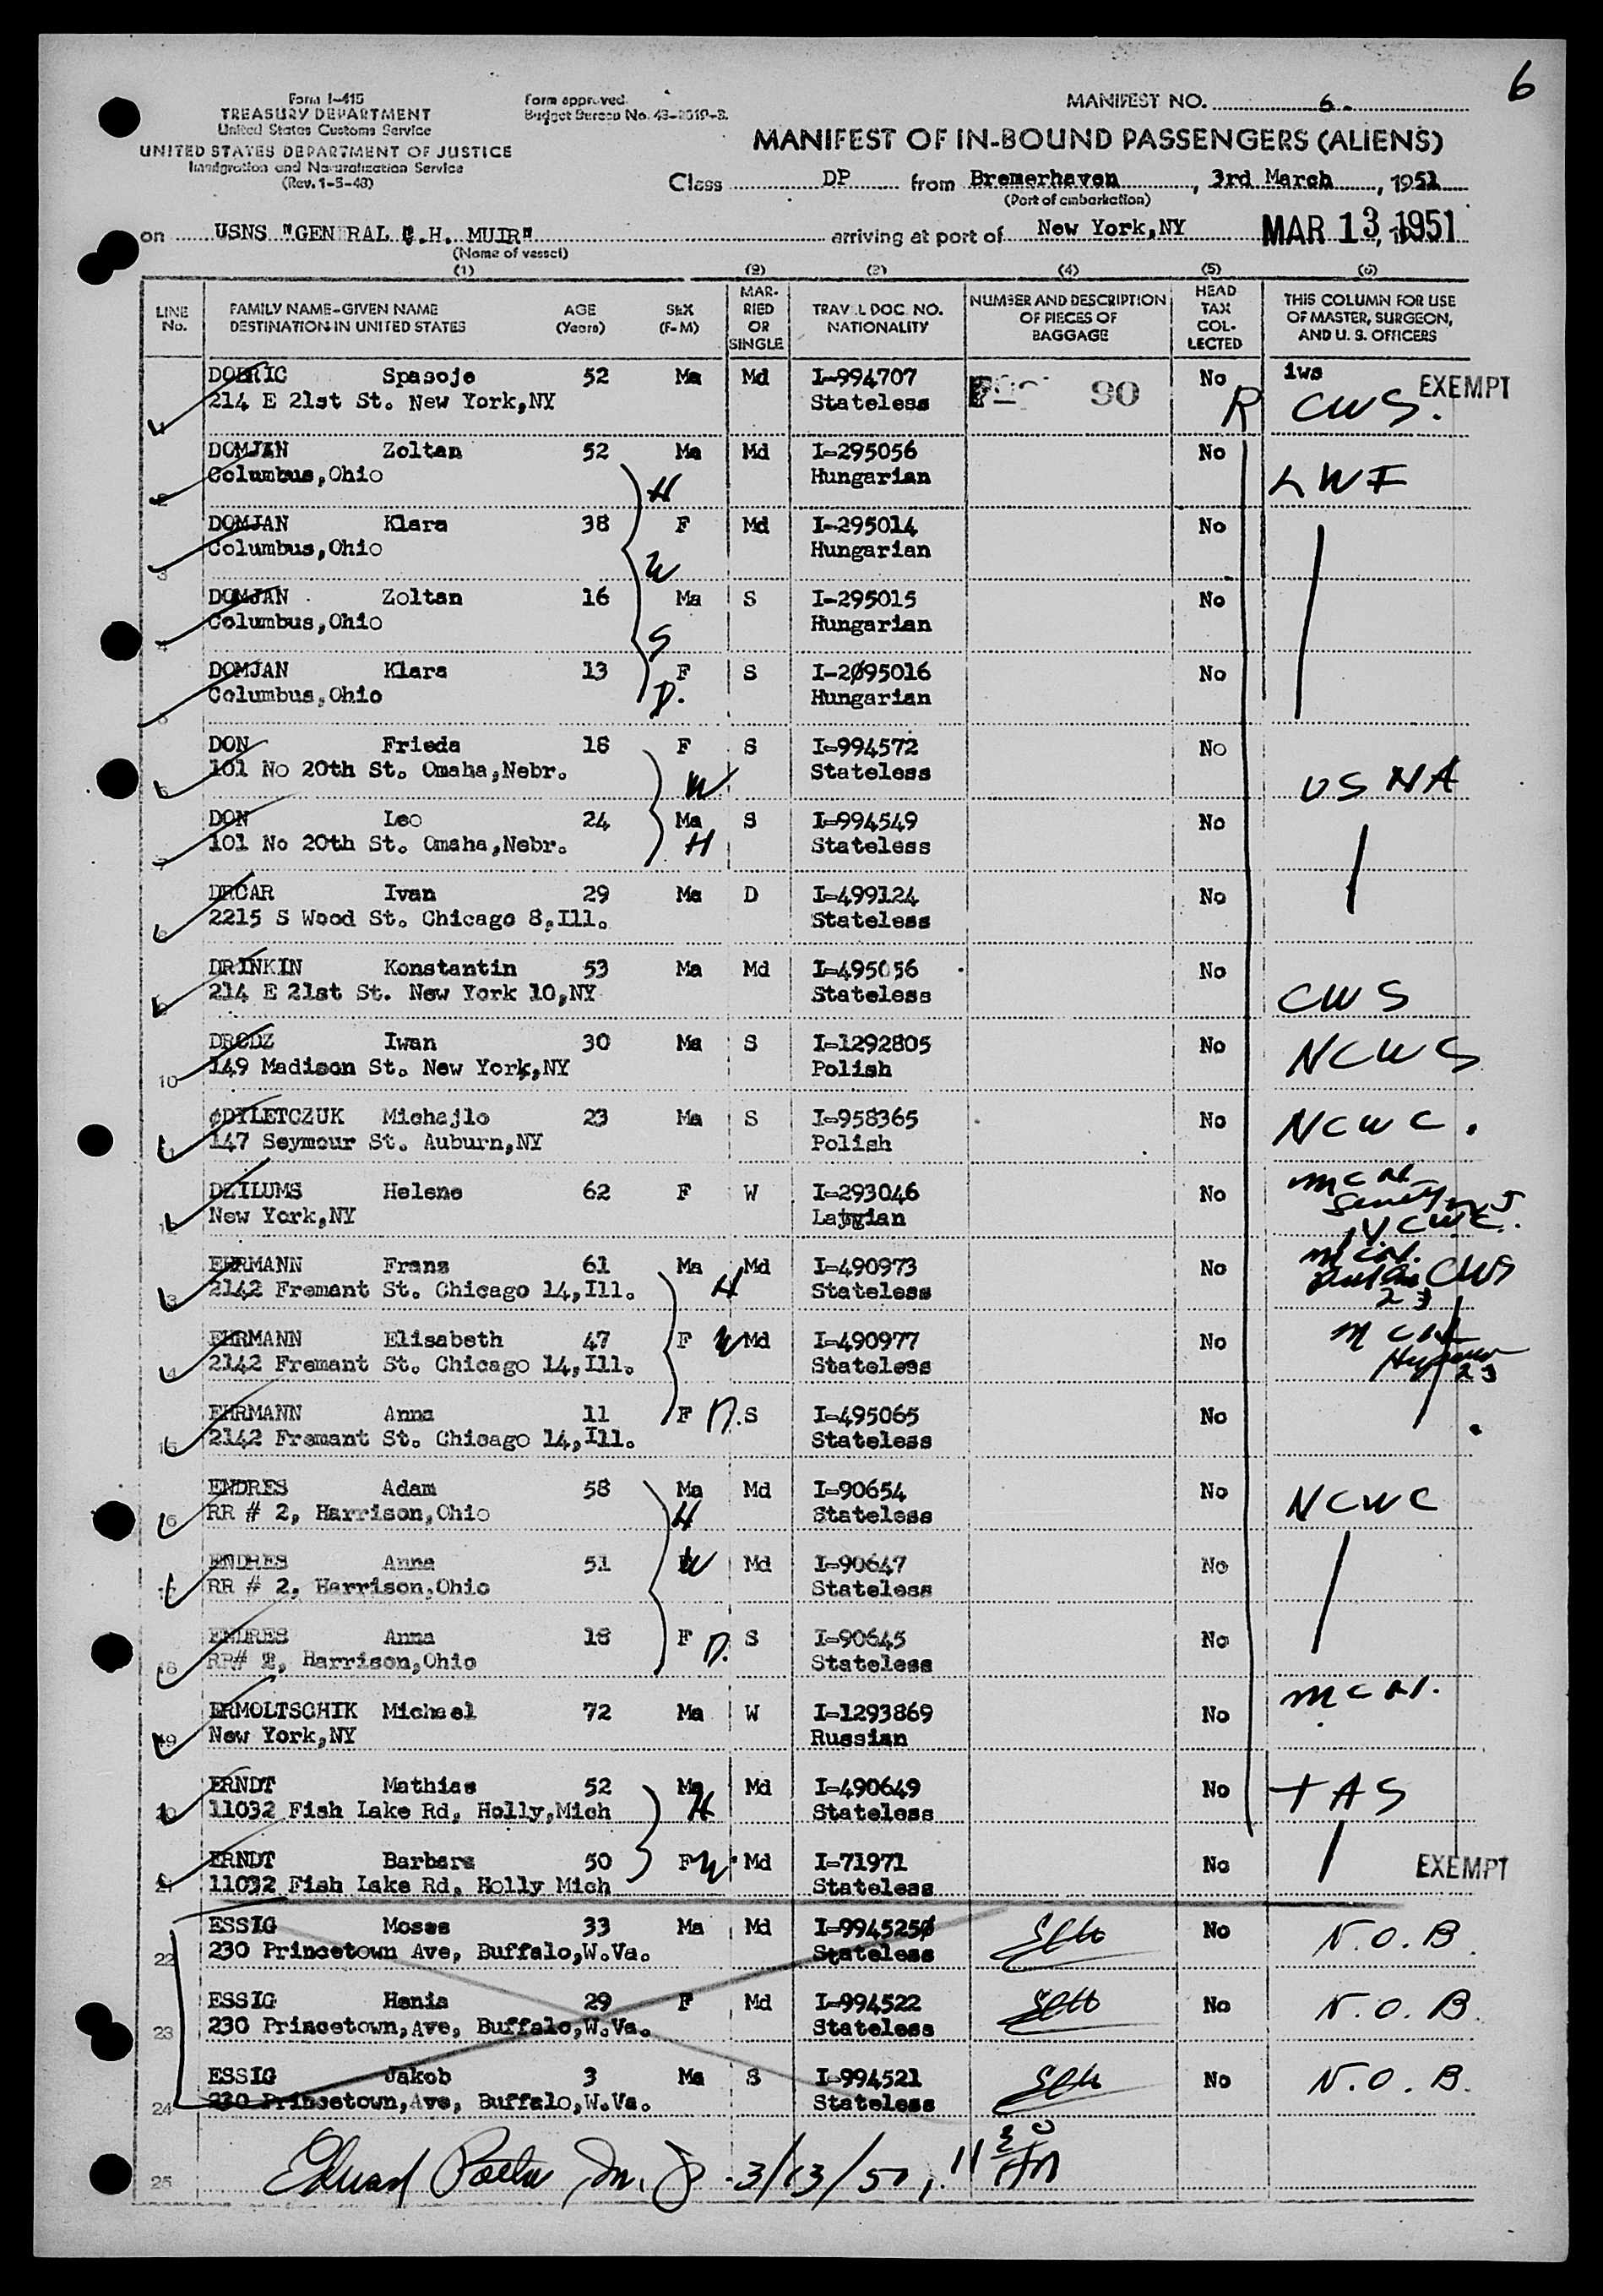 6
Form I-415
TREASURY DEPARTMENT
United States Customs Service
UNITED STATES DEPARTMENT OF JUSTICE
Immigration and Naturalization Service
(Rev. 1-5-48)
Form approved.
Budget Bureau No. 43-2019-3.
MANIFEST NO. 6.
MANIFEST OF IN-BOUND PASSENGERS (ALIENS)
Class DP from Bremerhaven, 3rd March, 1951
(Port of embarkation)
on USNS "GENERAL C.H. MUIR" arriving at port of New York,NY MAR 13 1951
(Name of vessel)
(1) (2) (3) (4) (5) (6)
LINE No. FAMILY NAME-GIVEN NAME DESTINATION IN UNITED STATES AGE (Years) SEX (F-M) MARRIED OR SINGLE TRAVEL DOC. NO. NATIONALITY NUMBER AND DESCRIPTION OF PIECES OF BAGGAGE HEAD TAX COLLECTED THIS COLUMN FOR USE OF MASTER, SURGEON, AND U. S. OFFICERS
DOBRIC Spasoje 52 Ma Md I-994707 90 No iws EXEMPT
214 E 21st St. New York,NY Stateless R CWS.
DOMJAN Zoltan 52 Ma Md I-295056 No
2 Columbus,Ohio H Hungarian LWF
DOMJAN Klara 38 F Md I-295014 No
3 Columbus,Ohio W Hungarian
DOMJAN Zoltan 16 Ma S I-295015 No
4 Columbus,Ohio S Hungarian
DOMJAN Klara 13 F S I-2095016 No
5 Columbus,Ohio D. Hungarian
DON Frieda 18 F S I-994572 No
6 101 No 20th St. Omaha,Nebr. W Stateless USNA
DON Leo 24 Ma S I-994549 No
7 101 No 20th St. Omaha,Nebr. H Stateless
DRCAR Ivan 29 Ma D I-499124 No
8 2215 S Wood St. Chicago 8,Ill. Stateless
DRINKIN Konstantin 53 Ma Md I-495056 No
9 214 E 21st St. New York 10,NY Stateless CWS
DRODZ Iwan 30 Ma S I-1292805 No NCWS
10 149 Madison St. New York,NY Polish
DYLETCZUK Michajlo 23 Ma S I-958365 No NCWC.
147 Seymour St. Auburn,NY Polish
DZILUMS Helene 62 F W I-293046 No
12 New York,NY Latvian
EHRMANN Franz 61 Ma Md I-490973 No CWS
13 2142 Fremant St. Chicago 14,Ill. H Stateless 23
EHRMANN Elisabeth 47 F W Md I-490977 No
14 2142 Fremant St. Chicago 14,Ill. Stateless 23
EHRMANN Anna 11 F D. S I-495065 No
15 2142 Fremant St. Chicago 14,Ill. Stateless
ENDRES Adam 58 Ma Md I-90654 No NCWC
16 RR # 2, Harrison,Ohio H Stateless
ENDRES Anna 51 W Md I-90647 No
RR # 2, Harrison,Ohio Stateless
ENDRES Anna 18 F D. S I-90645 No
18 RR# 2, Harrison,Ohio Stateless
ERMOLTSCHIK Michael 72 Ma W I-1293869 No
19 New York,NY Russian
ERNDT Mathias 52 Ma Md I-490649 No TAS
20 11032 Fish Lake Rd, Holly,Mich H Stateless
ERNDT Barbara 50 F W Md I-71971 No EXEMPT
21 11032 Fish Lake Rd, Holly Mich Stateless
ESSIG Moses 33 Ma Md I-9945250 No N.O.B.
22 230 Princetown Ave, Buffalo,W.Va. Stateless
ESSIG Henia 29 F Md I-994522 No N.O.B.
23 230 Princetown,Ave, Buffalo,W.Va. Stateless
ESSIG Jakob 3 Ma S I-994521 No N.O.B.
24 230 Princetown,Ave, Buffalo,W.Va. Stateless
25 3/13/51, 11 30